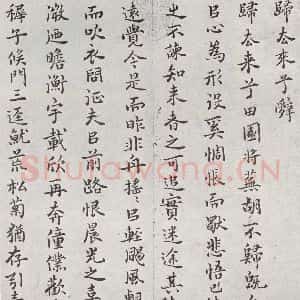 歸去来兮辭
歸去来兮田園將蕪胡不歸既
㠯心為形役奚惆悵而獨悲悟已
之不諫知来者之可追實迷途其
遠覺今是而昨非舟搖〻㠯輕颺風飄
而吹衣問征夫㠯前路恨晨光之熹
微廼瞻衡宇載欣再奔僮僕歡
稺子候門三逕就荒松菊猶存引壺
Shufawang.cn